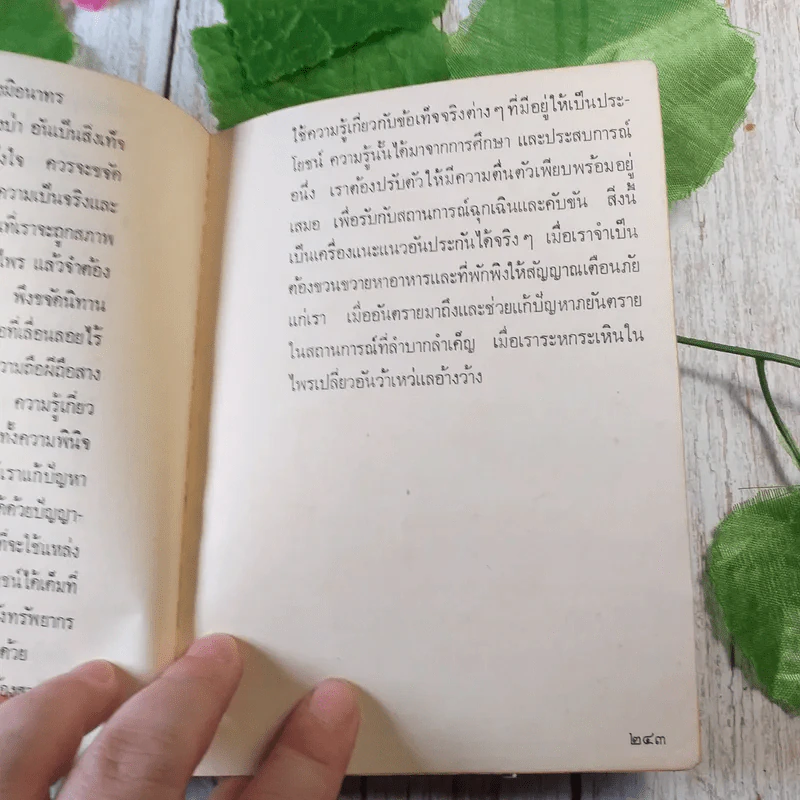 มือนาทร
งป่า อันเป็นสิ่งเท็จ
ังใจ ควรจะขจัด
ความเป็นจริงและ
ที่เราจะถูกสภาพ
ไพร แล้วจำต้อง
พึงขจัดนิทาน
อที่เลื่อนลอยไร้
ความถือผีถือสาง
ความรู้เกี่ยว
ทั้งความพินิจ
เราแก้ปัญหา
ด้ด้วยปัญญา-
ที่จะใช้แหล่ง
ชน์ได้เต็มที่
งทรัพยากร
ด้วย
ใช้ความรู้เกี่ยวกับข้อเท็จจริงต่าง ๆ ที่มีอยู่ให้เป็นประ-
โยชน์ ความรู้นั้นได้มาจากการศึกษา และประสบการณ์
อนึ่ง เราต้องปรับตัวให้มีความตื่นตัวเพียบพร้อมอยู่
เสมอ เพื่อรับกับสถานการณ์ฉุกเฉินและคับขัน สิ่งนี้
เป็นเครื่องแนะแนวอันประกันได้จริง ๆ เมื่อเราจำเป็น
ต้องขวนขวายหาอาหารและที่พักพิงให้สัญญาณเตือนภัย
แก่เรา เมื่ออันตรายมาถึงและช่วยแก้ปัญหาภยันตราย
ในสถานการณ์ที่ลำบากลำเค็ญ เมื่อเราระหกระเหินใน
ไพรเปลี่ยวอันว้าเหว่แลอ้างว้าง
๒๔๓